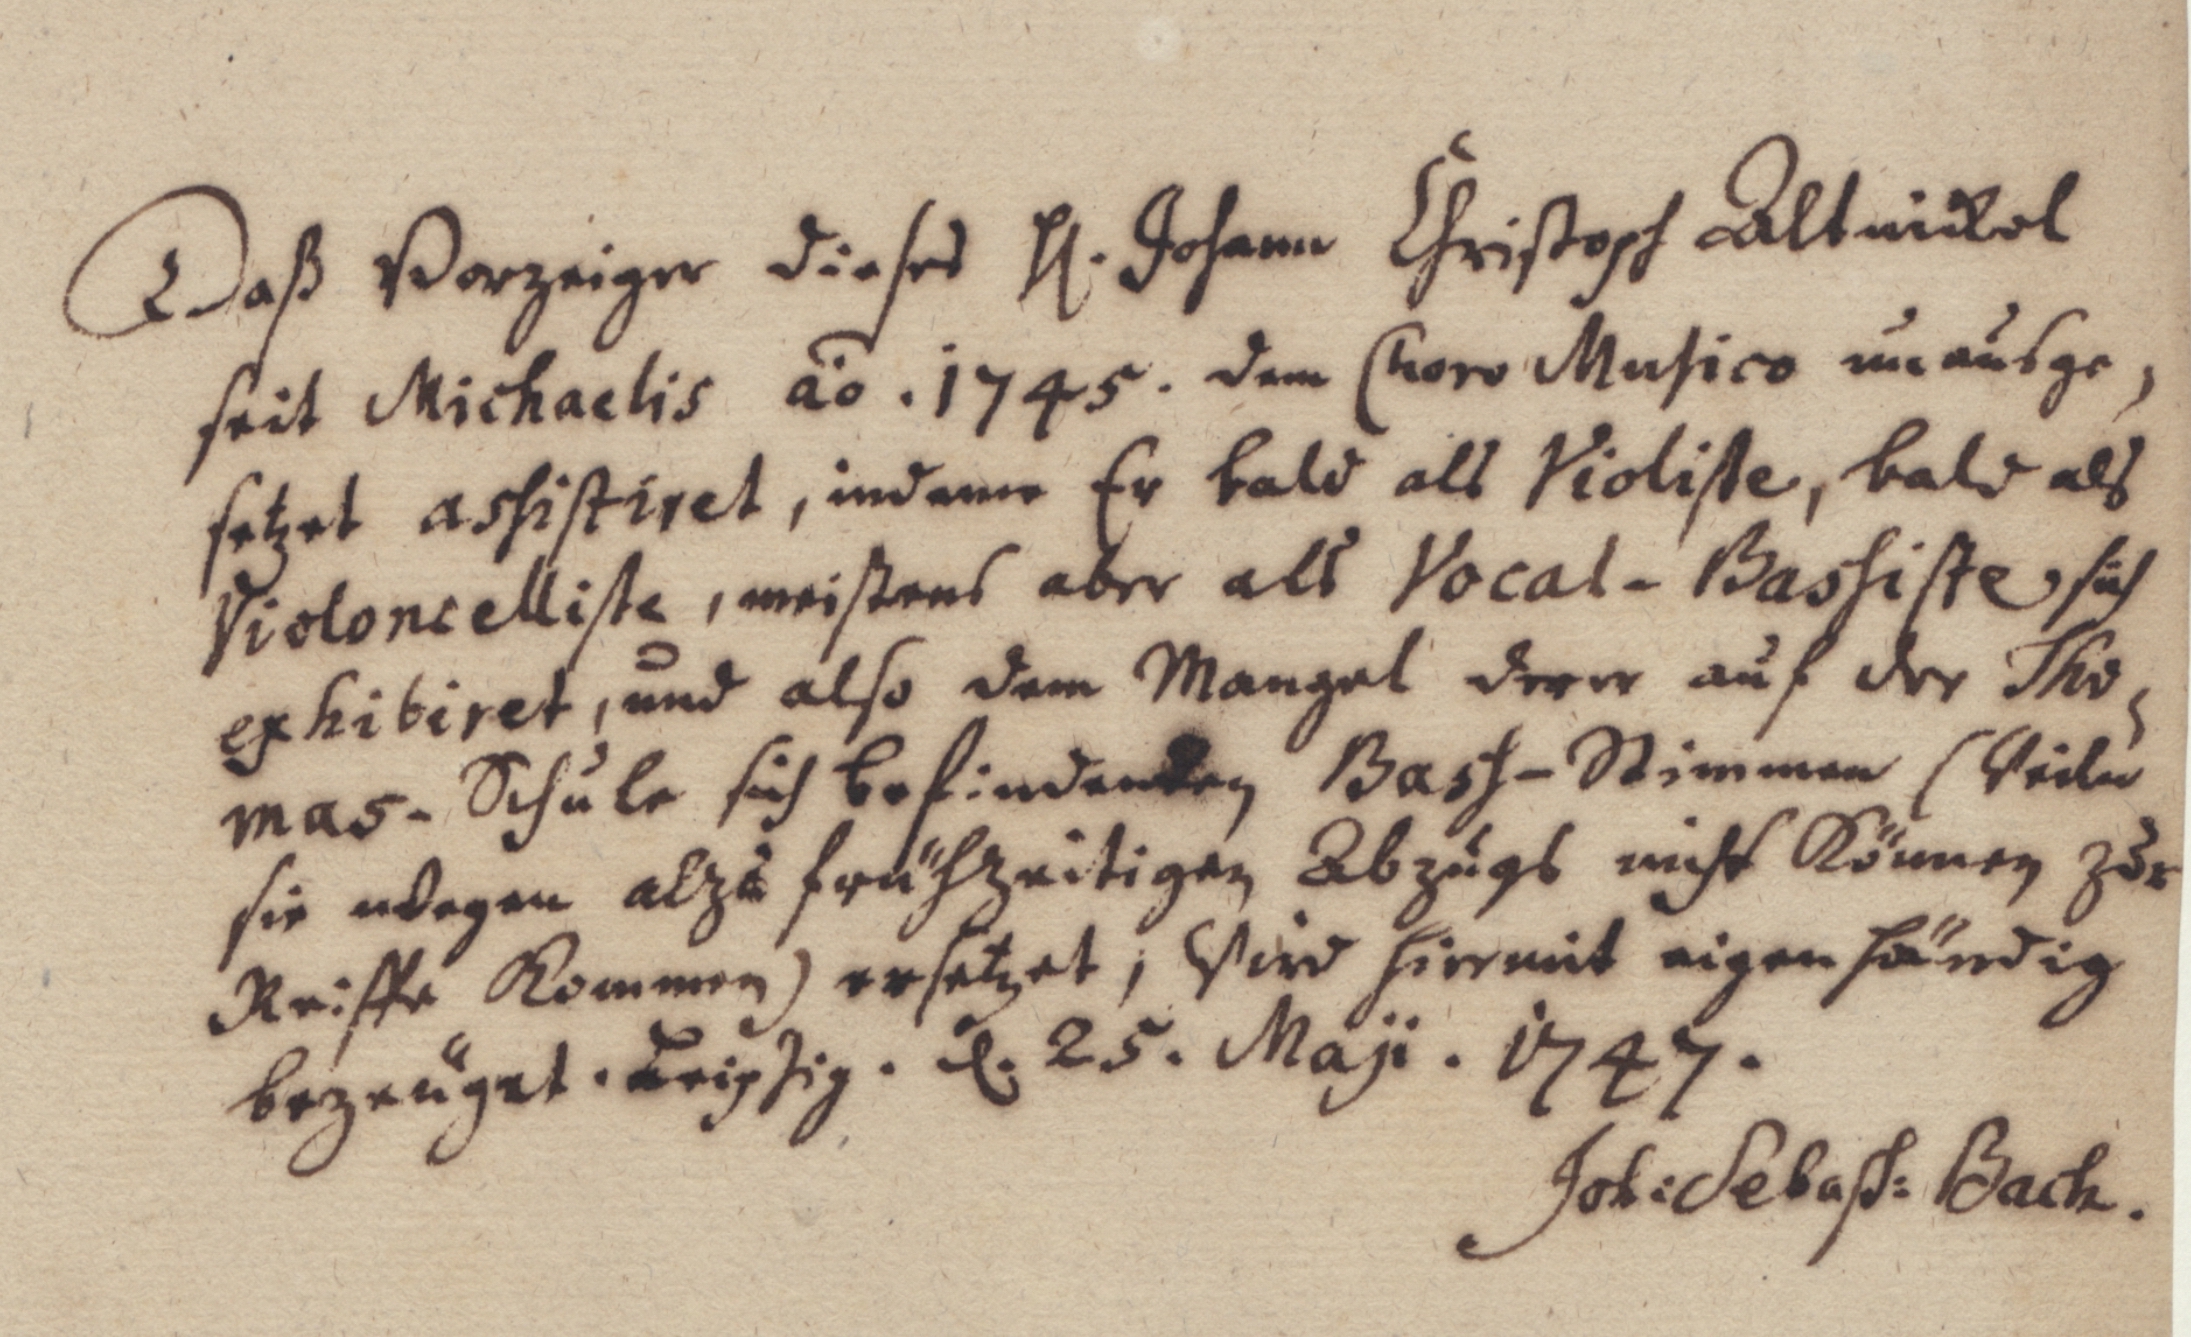 Daß Vorzeiger dieses H. Johann Christoph Altnickol
seit Michaelis aõ. 1745. dem Choro Musico unausge,
setzet assistiret, indeme Er bald als Violiste, bald als
Violoncelliste, meistens aber als Vocal-Bassiste sich
exhibiret, und also dem Mangel derer auf der Tho,
mas-Schule sich befindenden Bass-Stimmen (weiln
sie wegen alzu frühzeitigen Abzugs nicht können zur
Reiffe kommen) ersetzet; wird hiermit eigenhändig
bezeüget. Leipzig. d. 25. Maji. 1747.
Joh: Sebast: Bach.